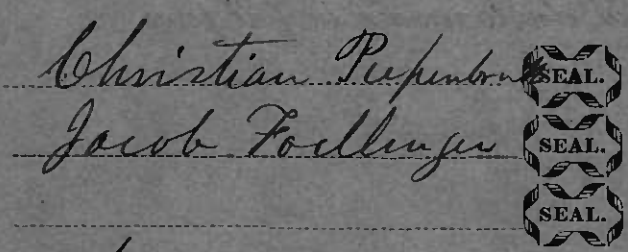 Christian Piepenbrink SEAL.
Jacob Foellinger SEAL.
SEAL.